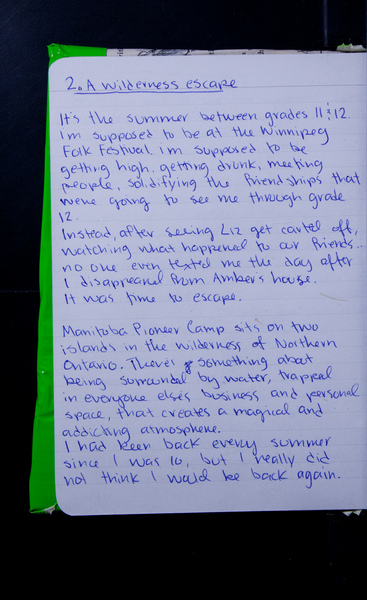 2. A wilderness escape
It's the summer between grades 11 & 12.
I'm supposed to be at the Winnipeg
Folk Festival. i'm supposed to be
getting high, getting drunk, meeting
people, solidifying the friendships that
were going to see me through grade
12.
Instead, after seeing Liz get carted off,
watching what happened to our friends...
no one even texted me the day after
I disappeared from Amber's house.
It was time to escape.
Manitoba Pioneer Camp sits on two
islands in the wilderness of Northern
Ontario. There's something about
being surrounded by water, trapped
in everyone elses business and personal
space, that creates a magical and
addicting atmosphere.
I had been back every summer
since I was 10, but I really did
not think I would be back again.